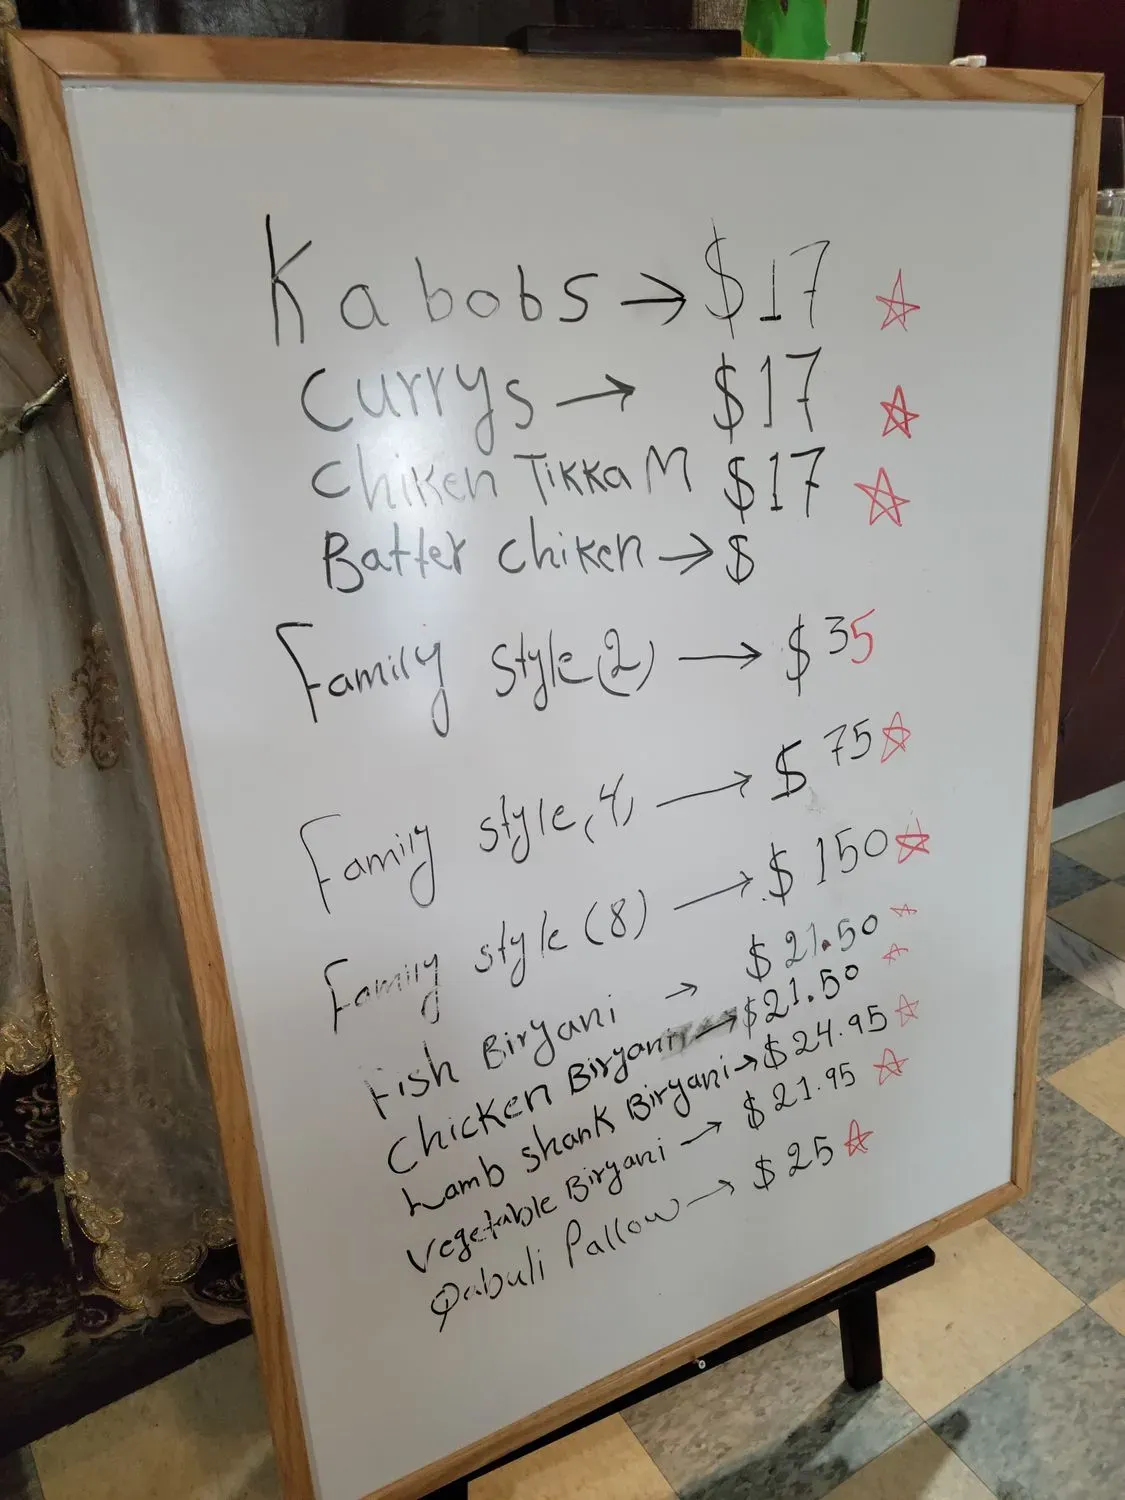 Kabobs → $17 ☆
Currys → $17 ☆
Chiken Tikka M $17 ☆
Batter chiken → $
Family Style (2) → $35
Family style (4) → $75 ☆
Family style (8) → $150 ☆
Fish Biryani → $21.50 ☆
Chicken Biryani → $21.50 ☆
Lamb shank Biryani → $24.95 ☆
Vegetable Biryani → $21.95 ☆
Qabuli Pallow → $25 ☆